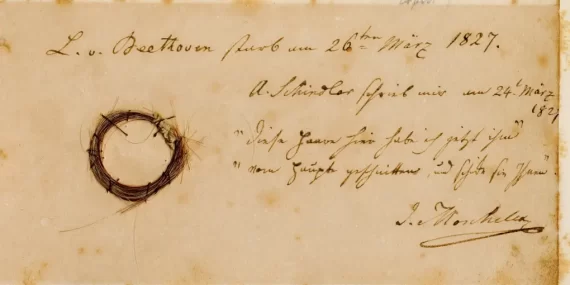 L. v. Beethoven starb am 26ten März 1827.
A. Schindler schrieb mir am 24t März
1827
"diese Haare hier hab ich jetzt ihm"
"vom Haupte geschnitten, und schicke sie Ihnen".
I. Moscheles